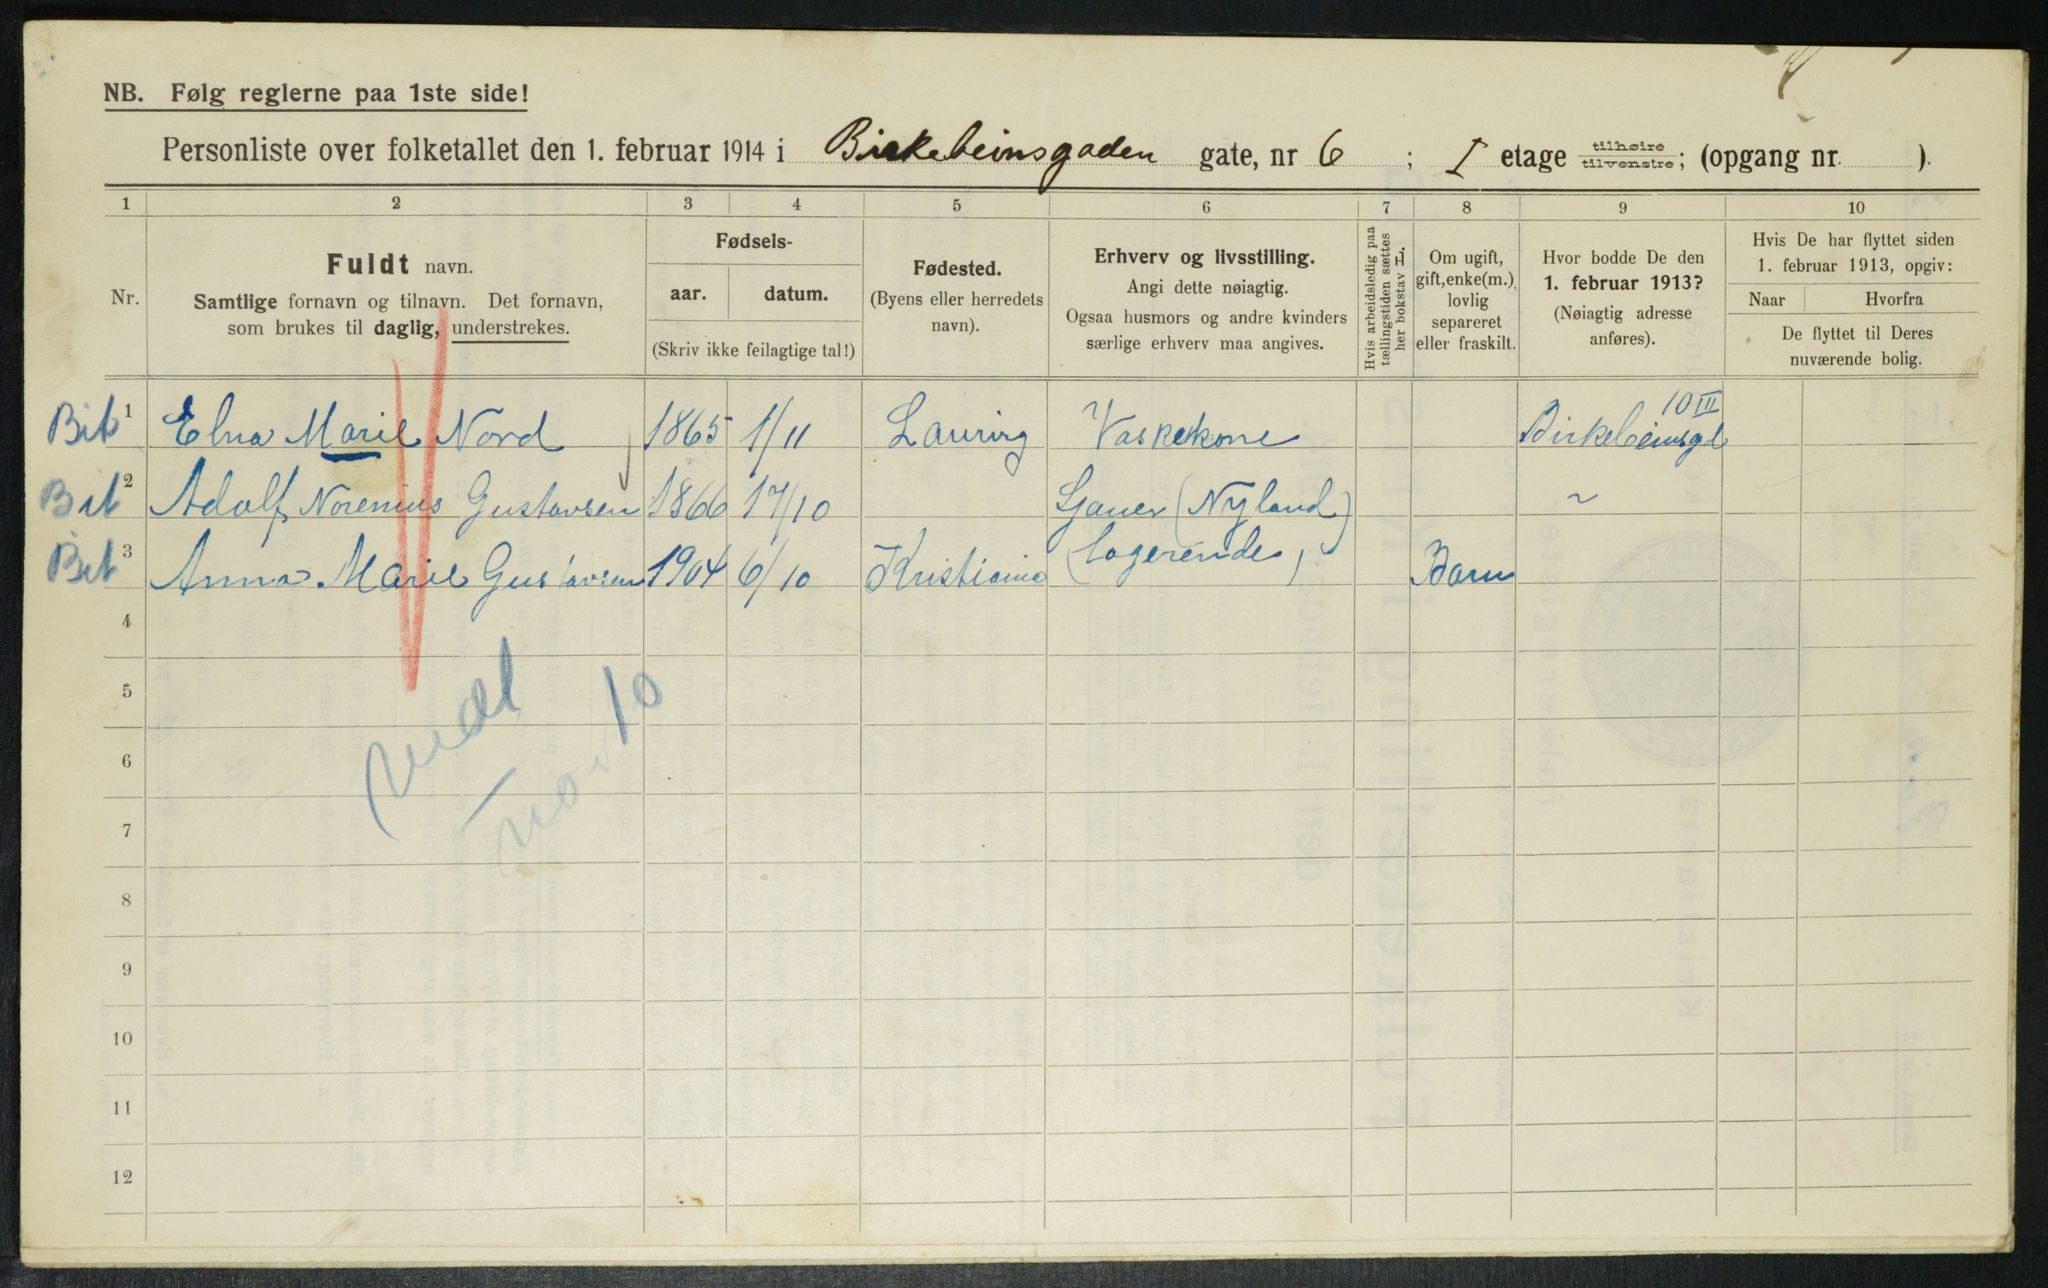 NB. Følg reglerne paa 1ste side!
Personliste over folketallet den 1. februar 1914 i Birkebeinsgaden gate, nr 6 ; I etage tilhøire tilvenstre; (opgang nr. ).
1 2 3 4 5 6 7 8 9 10
Nr.
Fuldt navn.
Samtlige fornavn og tilnavn. Det fornavn,
som brukes til daglig, understrekes.
Fødsels-
aar. datum.
(Skriv ikke feilagtige tal!)
Fødested.
(Byens eller herredets
navn).
Erhverv og livsstilling.
Angi dette nøiagtig.
Ogsaa husmors og andre kvinders
særlige erhverv maa angives.
Hvis arbeidsledig paa
tællingstiden sættes
her bokstav L.
Om ugift,
gift, enke(m.),
lovlig
separeret
eller fraskilt.
Hvor bodde De den
1. februar 1913?
(Nøiagtig adresse
anføres).
Hvis De har flyttet siden
1. februar 1913, opgiv:
Naar Hvorfra
De flyttet til Deres
nuværende bolig.
10 III
1 Elna Marie Nord 1865 1/11 Vaskekone Birkebeinsgd
2 Adolf Norenius Gustavsen 1866 17/10 (Nyland) ~
3 Anna Marie Gustavsen 1904 6/10 Kristiania (logerende) Barn
4
5
6
7
8
9
10
11
12
10